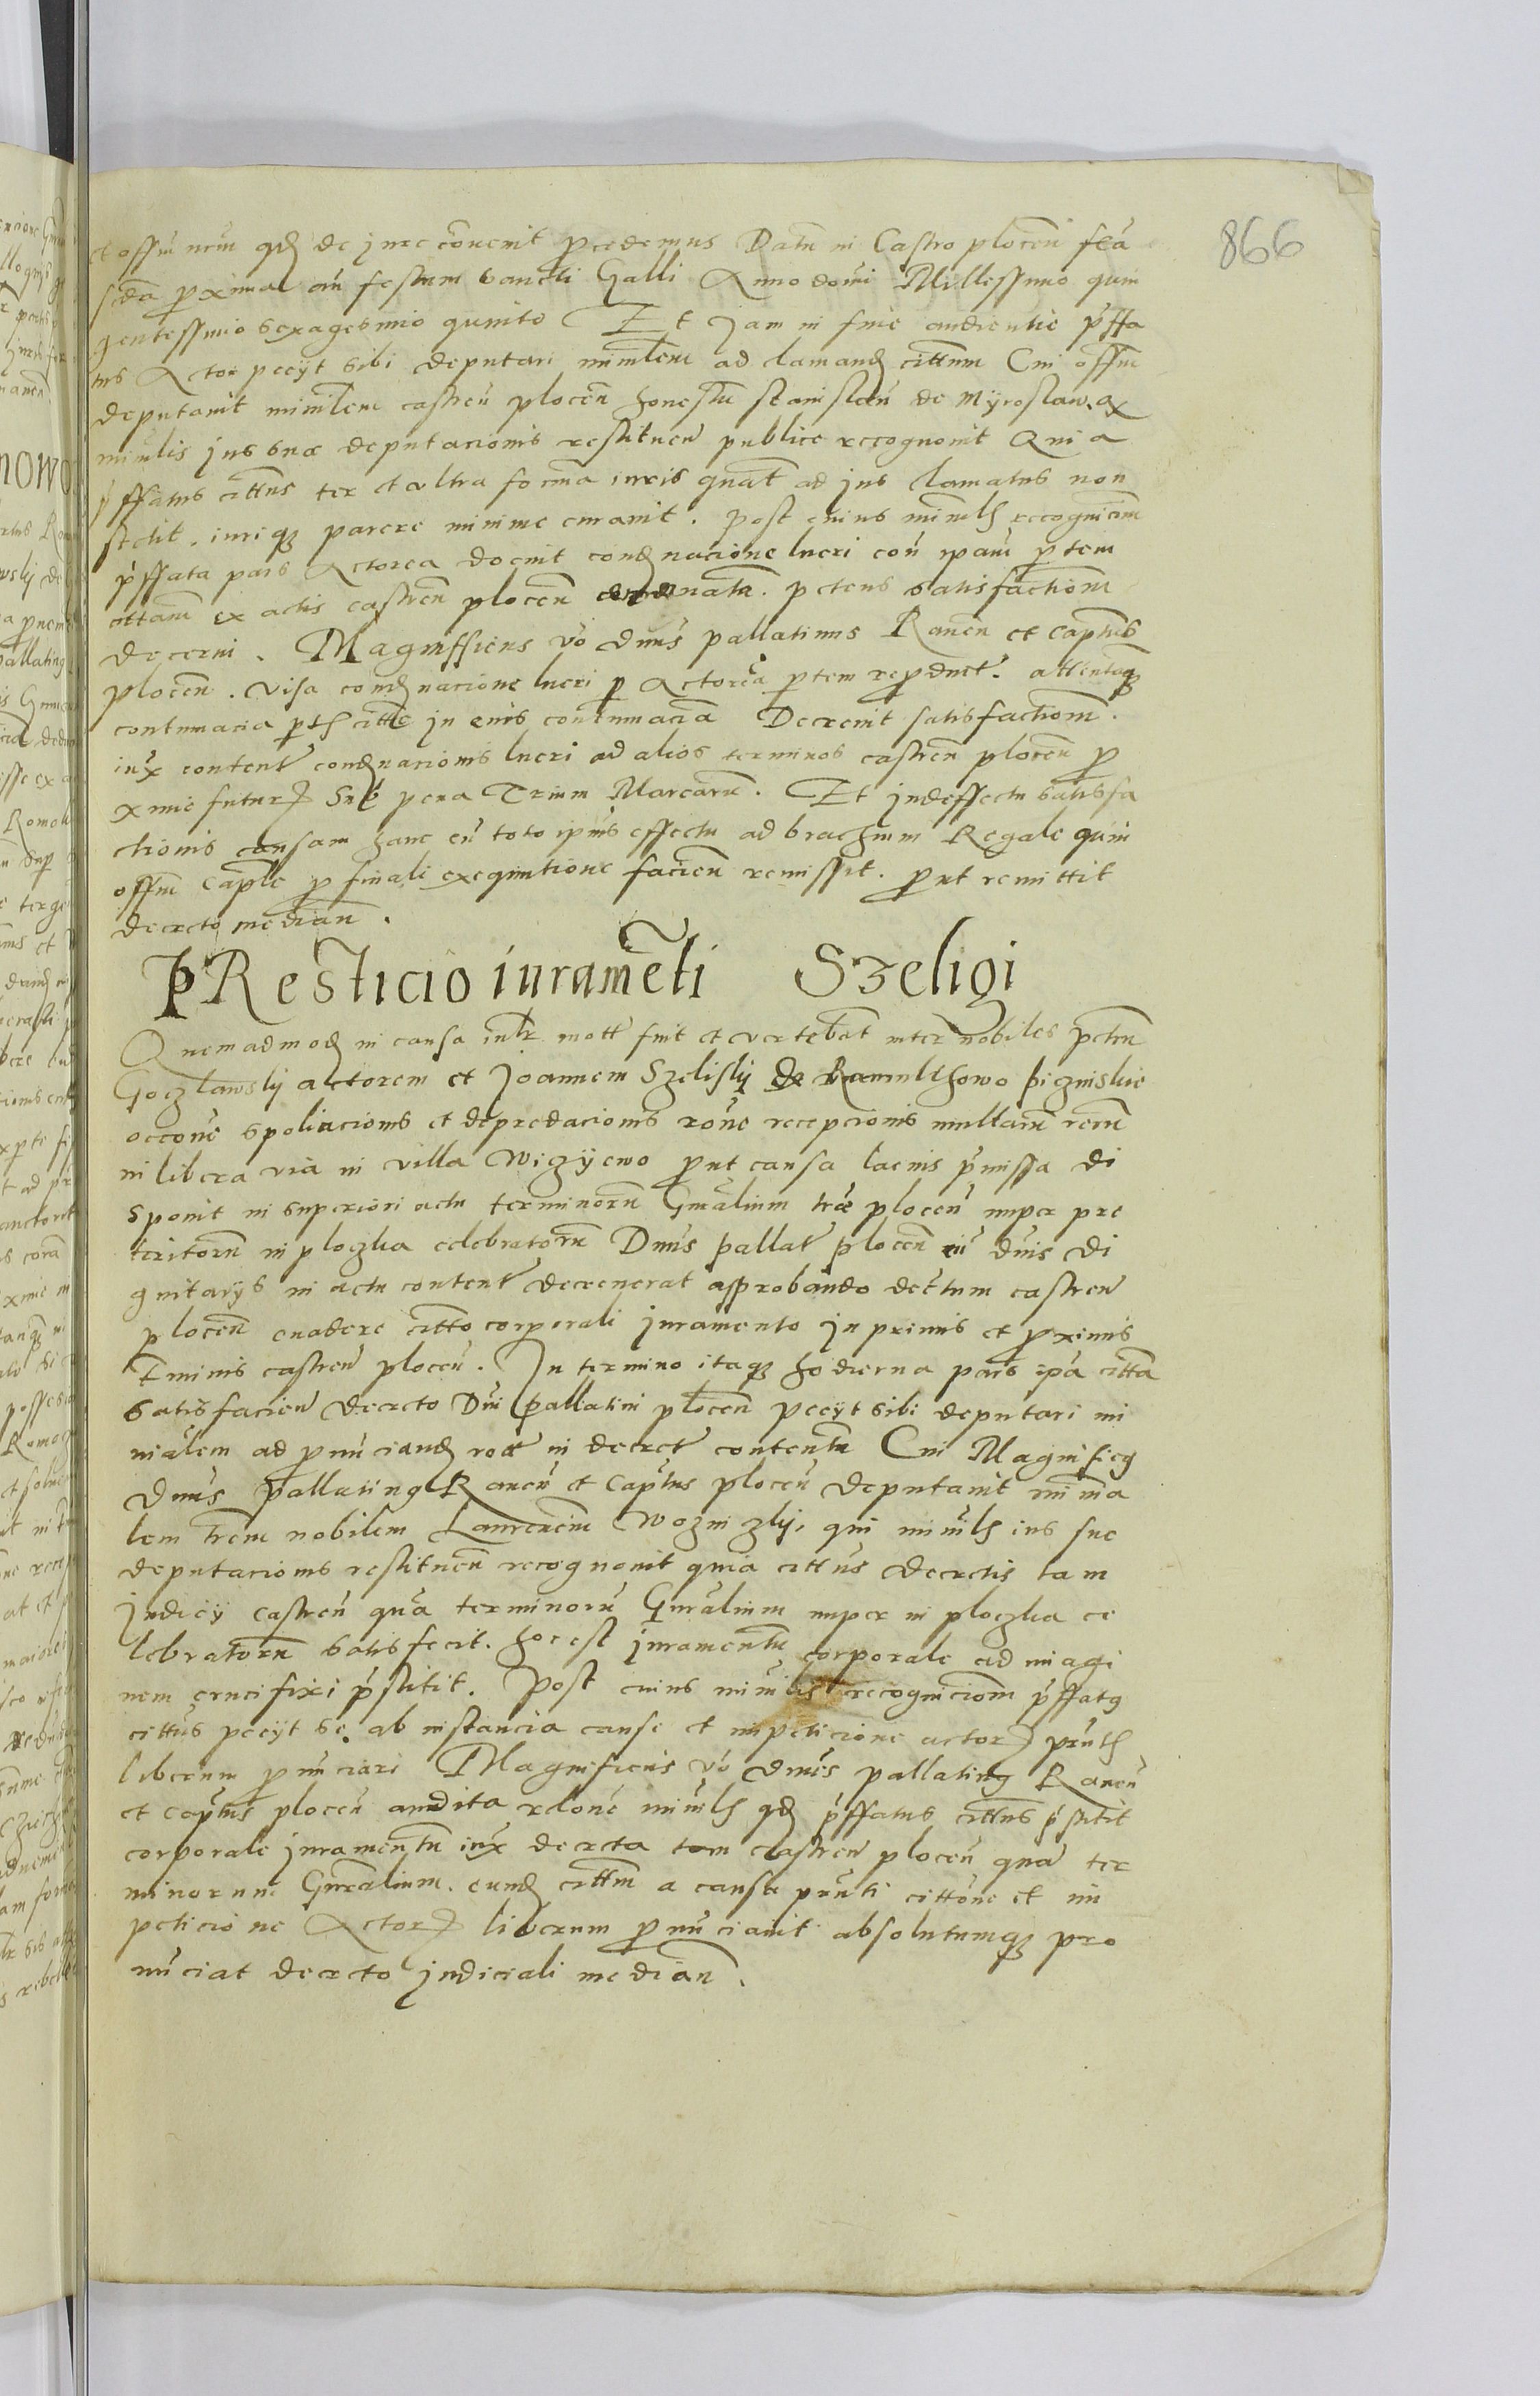 866
et offm nrm qd de jure convenit procedemus Datu in Castro plocen feria
scda proxima an festum Sancti Galli Anno domini Millessimo quin
gentessimo sexagesimo quinto Et Jam in fine audientie prffa
tus Actor pecyt sibi deputari minrlem ad clamand cittum Cui offm
deputavit minrlem castren plocen honestu stanislau de Myroslaw. q
minrlis jus suae deputacionis restituen publice recognovit Quia
prffatus cittus ter et ultra forma iuris quat ad jus clamatus non
stetit. iuriq parere minime curavit. post cuius minrlis recognicionem
prffata pars Actorea docuit condnacione lucri con ipam partem
cittam ex actis castren plocen emanata. petens satisfactionem
decerni. Magnifficus vo dnus pallatinus Raven et Captus
plocen. visa condnacione lucri p Actorea partem reproduct. attentaq
contumacia partis citte in eius contumacia Decrevit satisfactionem.
iux content condnacionis lucri ad alios terminos castren plocen pro
xime futur Sub pena Trium Marcaru. Et indeffectu satisfa
ctionis causam hanc cu toto ipius effectu ad brachium Regale quin
offm Caple pro finali exequutione facien remissit. prout remittit
decreto median.
PResticio iurameti Szeligi
Quemadmod in causa inlr mott fuit et vertebat inter nobiles petru
Goczlawsky actorem et Joannem Szelisky de Ramulthowo pigniskie
occone spoliacionis et depredacionis rone recepcionis multaru reru
in libera via in villa Wizyewo prout causa lacius prmissa di
sponit in superiori actu terminoru Gnralium trae plocen nuper pre
teritoru in ploczka celebratoru Dnus pallat plocen cu dnis di
gnitarys in actu content decreverat approbando dectum castren
plocen evadere citto corporali juramento in primis et proximis
Tminis castren plocen. In termino itaq hodierna pars ipa citta
satisfacien decreto Dni pallatini plocen pecyt sibi deputari mi
nialem ad pronunciand rote in decret contentu Cui Magnificg
Dnus pallating Raven et Captus plocen deputavit mima
lem trem nobilem Laurenciu Wozniczky, qui minrlis ius sue
deputacionis restituen recognovit quia cittus decretis tam
Judicy castren qua terminoru Gnralium nuper in ploczka ce
lebratoru satisfecit. hoc est juramentu corporale ad imagi
nem crucifixi prstitit. Post cuius minrlis recognicionem prffatg
cittus pecyt se ab instancia cause et impeticione actor prntis
liberum pronunciari Magnificus vo dnus pallating Raven
et captus plocen audita relone minrlis qd prffatus cittus prstitit
corporale juramentu iux decreta tam castren plocen qua ter
minorum Gnralium. eund cittm a causa prnti cittone et im
peticione Actor liberum pronunciavit absolutumq pro
nunciat decreto judiciali median.